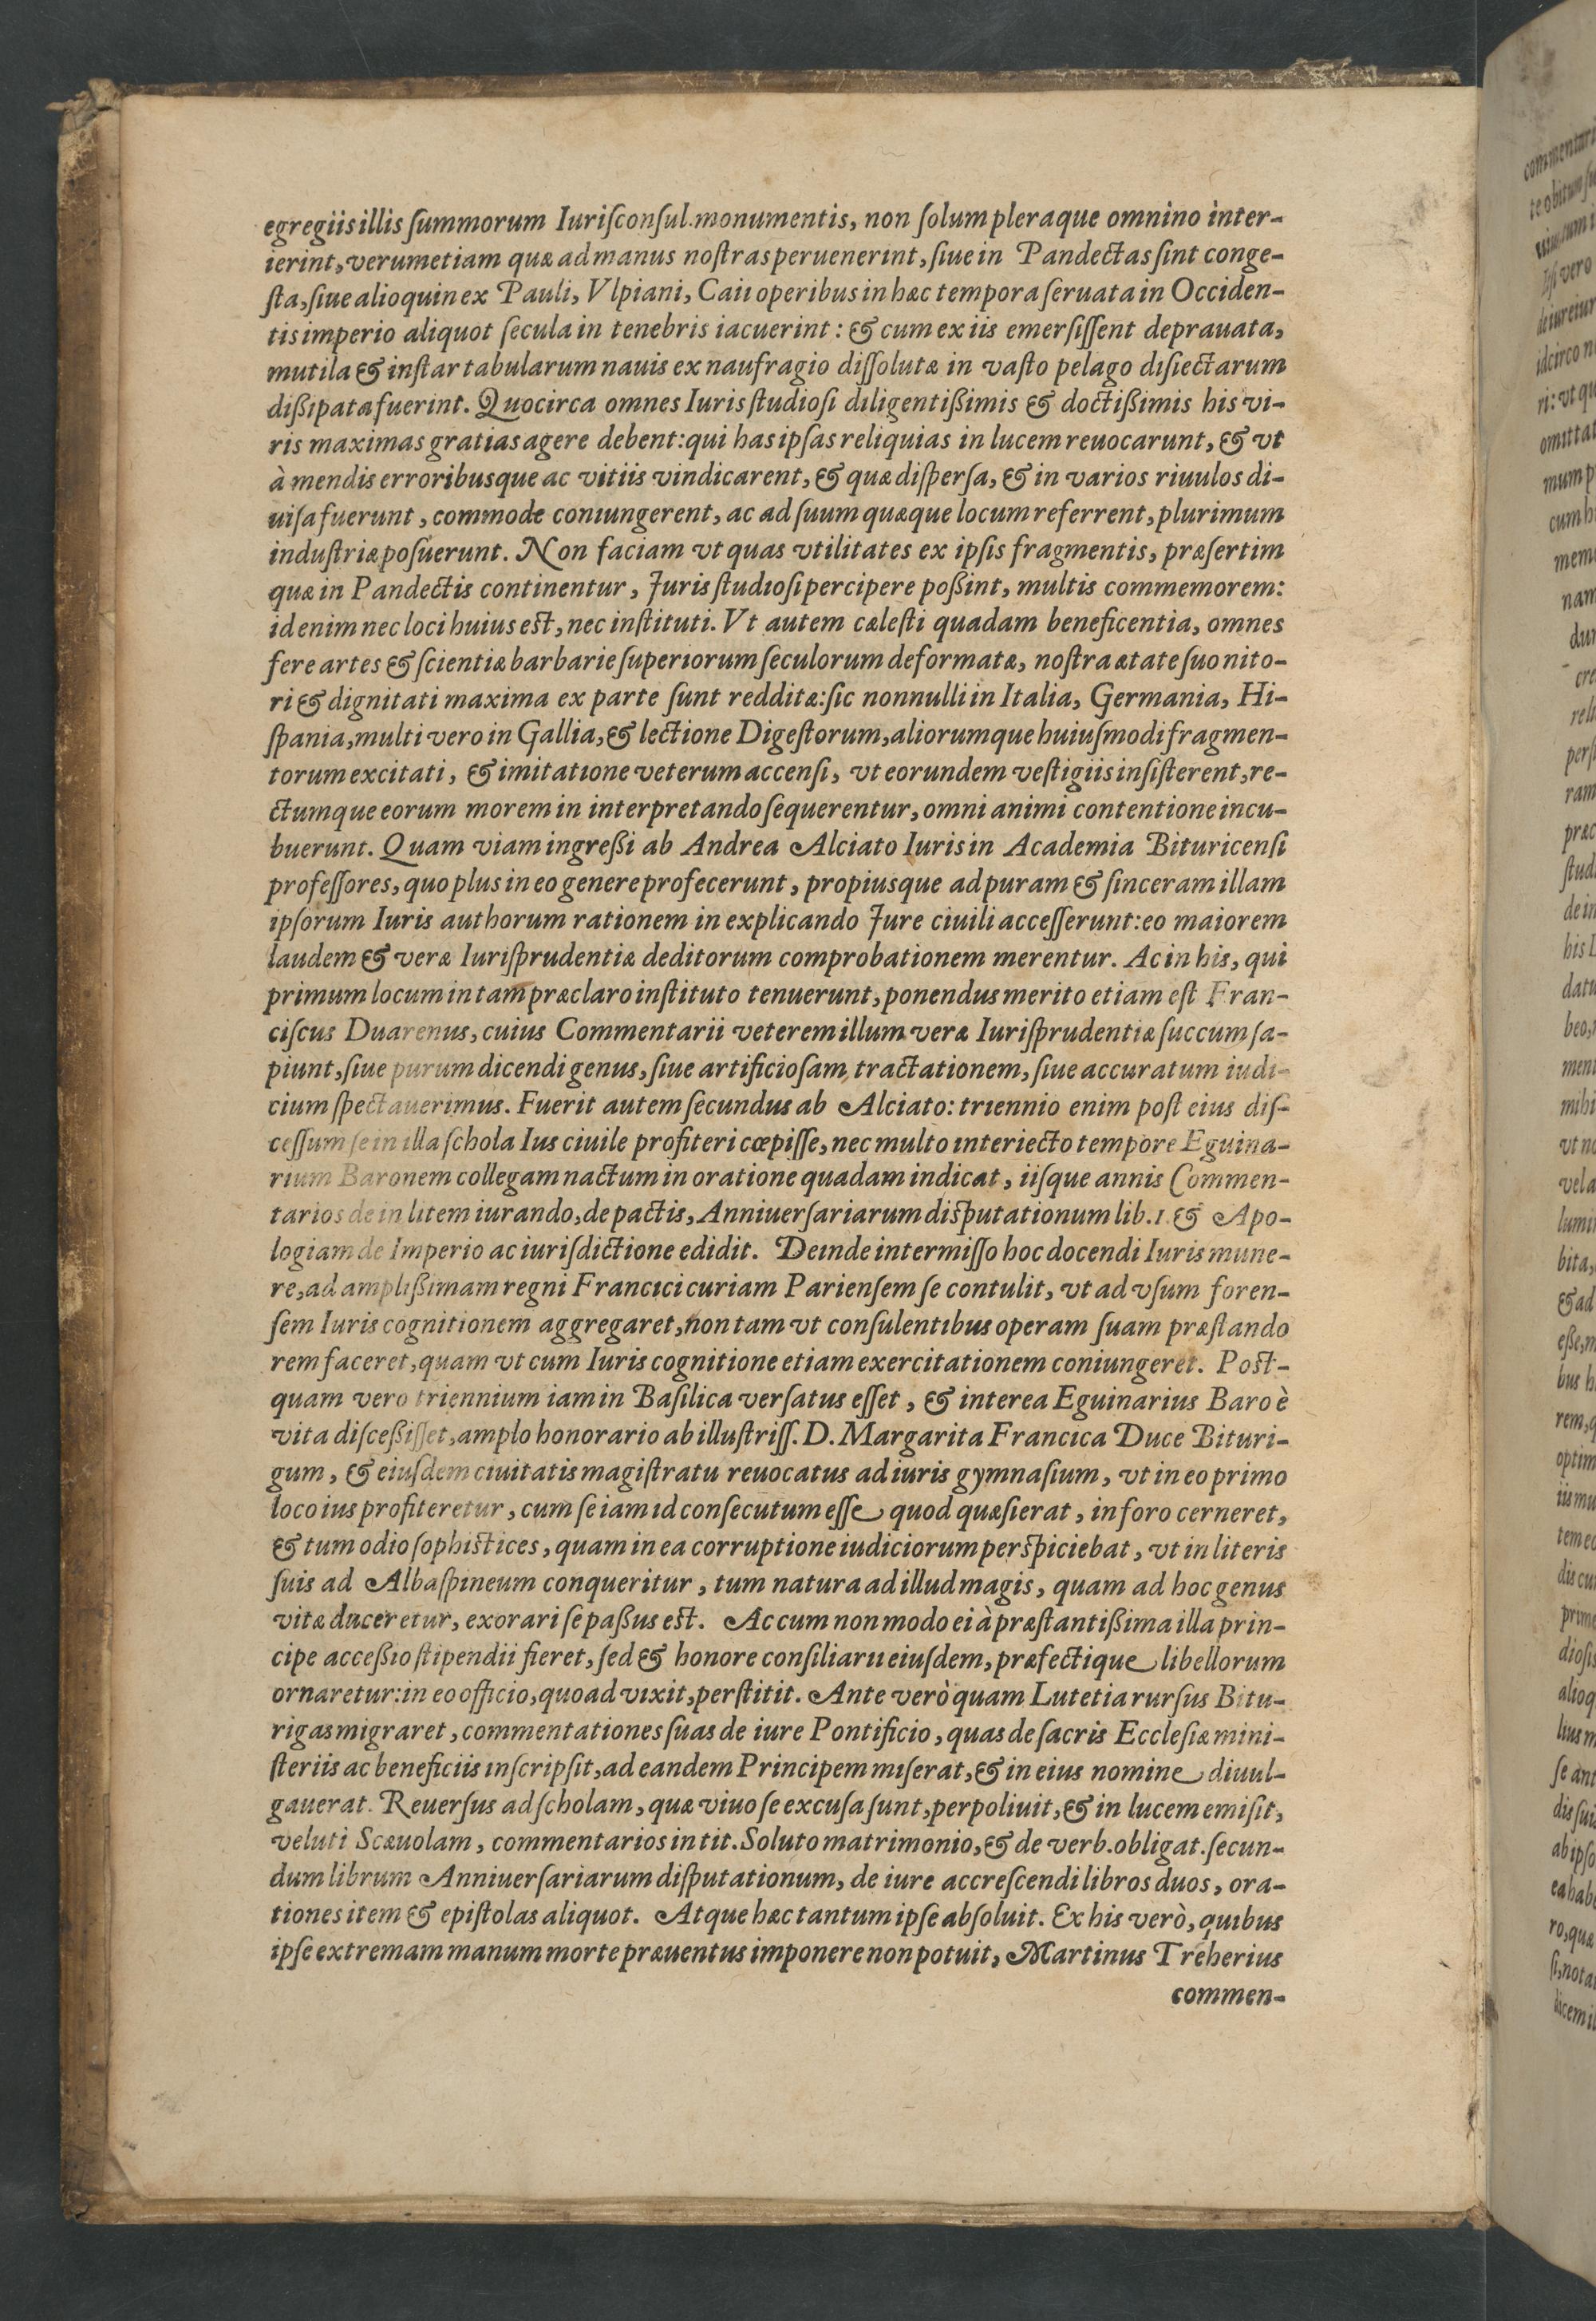 egregiis illis ſummorum Iuriſconſul. monumentis, non ſolum pleraque omnino inter-
ierint, verumetiam quæ ad manus noſtras peruenerint, ſiue in Pandectas ſint conge-
ſta, ſiue alioquin ex Pauli, Vlpiani, Caii operibus in hæc tempora ſeruata in Occiden-
tis imperio aliquot ſecula in tenebris iacuerint : & cum ex iis emerſiſſent deprauata,
mutila & inſtar tabularum nauis ex naufragio diſſolutæ in vaſto pelago diſiectarum
dißipata fuerint. Quocirca omnes Iuris ſtudioſi diligentißimis & doctißimis his vi-
ris maximas gratias agere debent: qui has ipſas reliquias in lucem reuocarunt, & vt
à mendis erroribusque ac vitiis vindicarent, & quæ diſperſa, & in varios riuulos di-
uiſa fuerunt, commode coniungerent, ac ad ſuum quæque locum referrent, plurimum
induſtriæ poſuerunt. Non faciam vt quas vtilitates ex ipſis fragmentis, præſertim
quæ in Pandectis continentur, Iuris ſtudioſi percipere poßint, multis commemorem:
id enim nec loci huius est, nec inſtituti. Vt autem cæleſti quadam beneficentia, omnes
fere artes & ſcientiæ barbarie ſuperiorum ſeculorum deformatæ, noſtra ætate ſuo nito-
ri & dignitati maxima ex parte ſunt redditæ: ſic nonnulli in Italia, Germania, Hi-
ſpania, multi vero in Gallia, & lectione Digeſtorum, aliorumque huiuſmodi fragmen-
torum excitati, & imitatione veterum accenſi, vt eorundem veſtigiis inſiſterent, re-
ctumque eorum morem in interpretando ſequerentur, omni animi contentione incu-
buerunt. Quam viam ingreßi ab Andrea Alciato Iuris in Academia Bituricenſi
profeſſores, quo plus in eo genere profecerunt, propiusque ad puram & ſinceram illam
ipſorum Iuris authorum rationem in explicando Iure ciuili acceſſerunt: eo maiorem
laudem & veræ Iuriſprudentiæ deditorum comprobationem merentur. Ac in his, qui
primum locum in tam præclaro inſtituto tenuerunt, ponendus merito etiam eſt Fran-
ciſcus Duarenus, cuius Commentarii veterem illum veræ Iuriſprudentiæ ſuccum ſa-
piunt, ſiue purum dicendi genus, ſiue artificioſam tractationem, ſiue accuratum iudi-
cium ſpectauerimus. Fuerit autem ſecundus ab Alciato: triennio enim poſt eius diſ-
ceſſum ſe in illa ſchola Ius ciuile profiteri cœpiſſe, nec multo interiecto tempore Eguina-
rium Baronem collegam nactum in oratione quadam indicat, iiſque annis Commen-
tarios de in litem iurando, de pactis, Anniuerſariarum disputationum lib. 1. & Apo-
logiam de Imperio ac iuriſdictione edidit. Deinde intermiſſo hoc docendi Iuris mune-
re, ad amplißimam regni Francici curiam Parienſem ſe contulit, vt ad vſum foren-
ſem Iuris cognitionem aggregaret, non tam vt conſulentibus operam ſuam præſtando
rem faceret, quam vt cum Iuris cognitione etiam exercitationem coniungeret. Post-
quam vero triennium iam in Baſilica verſatus eſſet, & interea Eguinarius Baro è
vita diſceßiſſet, amplo honorario ab illuſtriſſ. D. Margarita Francica Duce Bituri-
gum, & eiuſdem ciuitatis magiſtratu reuocatus ad iuris gymnaſium, vt in eo primo
loco ius profiteretur, cum ſe iam id conſecutum eſſe quod quæſierat, in foro cerneret,
& tum odio ſophistices, quam in ea corruptione iudiciorum perspiciebat, vt in literis
ſuis ad Albaſpineum conqueritur, tum natura ad illud magis, quam ad hoc genus
vitæ duceretur, exorari ſe paßus est. Ac cum non modo ei à præſtantißima illa prin-
cipe acceßio ſtipendii fieret, ſed & honore conſiliarii eiuſdem, præfectique libellorum
ornaretur: in eo officio, quoad vixit, perſtitit. Ante verò quam Lutetia rurſus Bitu-
rigas migraret, commentationes ſuas de iure Pontificio, quas de ſacris Eccleſiæ mini-
ſteriis ac beneficiis inſcripſit, ad eandem Principem miſerat, & in eius nomine diuul-
gauerat. Reuerſus ad ſcholam, quæ viuo ſe excuſa ſunt, perpoliuit, & in lucem emiſit,
veluti Scæuolam, commentarios in tit. Soluto matrimonio, & de verb. obligat. ſecun-
dum librum Anniuerſariarum diſputationum, de iure accreſcendi libros duos, ora-
tiones item & epiſtolas aliquot. Atque hæc tantum ipſe abſoluit. Ex his verò, quibus
ipſe extremam manum morte præuentus imponere non potuit, Martinus Treherius
commen-